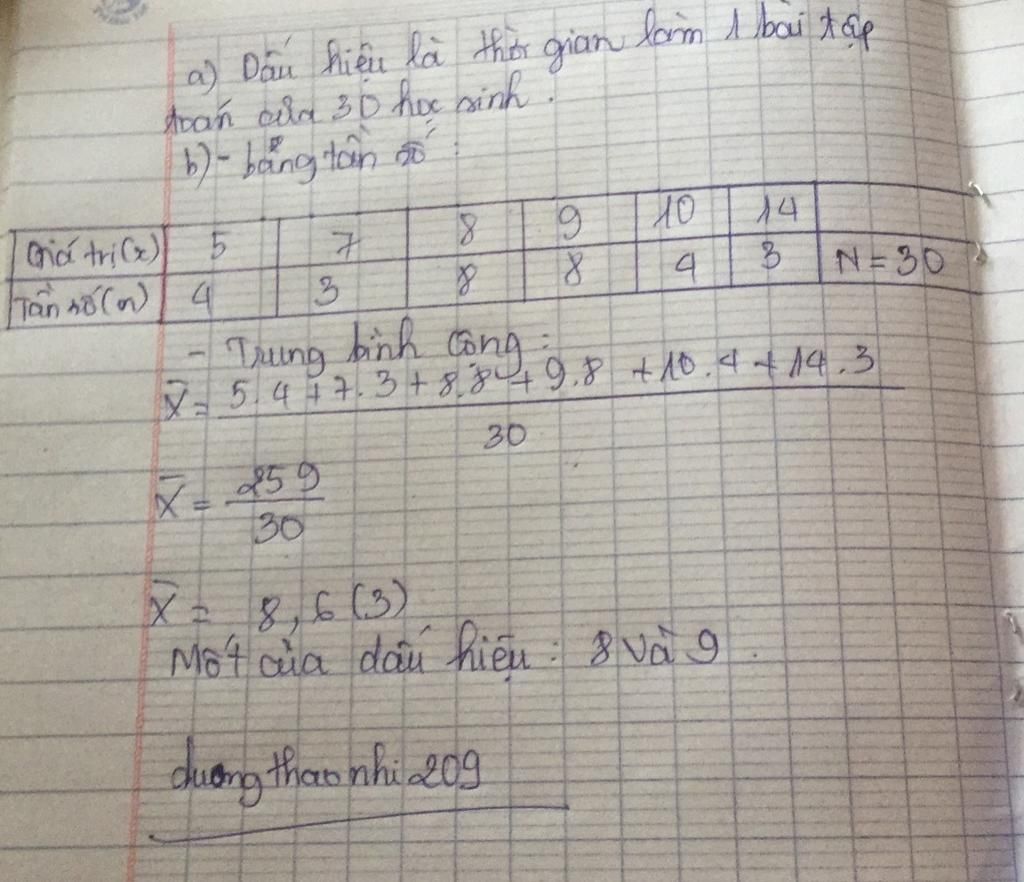 a) Dấu hiệu là thời gian làm 1 bài tập
toán của 30 học sinh.
b) - bảng tần số :
Giá trị(x) 5 7 8 9 10 14
Tần số(n) 4 3 8 8 4 3 N = 30
- Trung bình cộng :
X̄ = 5.4 + 7.3 + 8.8 + 9.8 + 10.4 + 14.3
30
X̄ = 259
30
X̄ = 8,6(3)
Mốt của dấu hiệu : 8 và 9.
duongthaonhi209